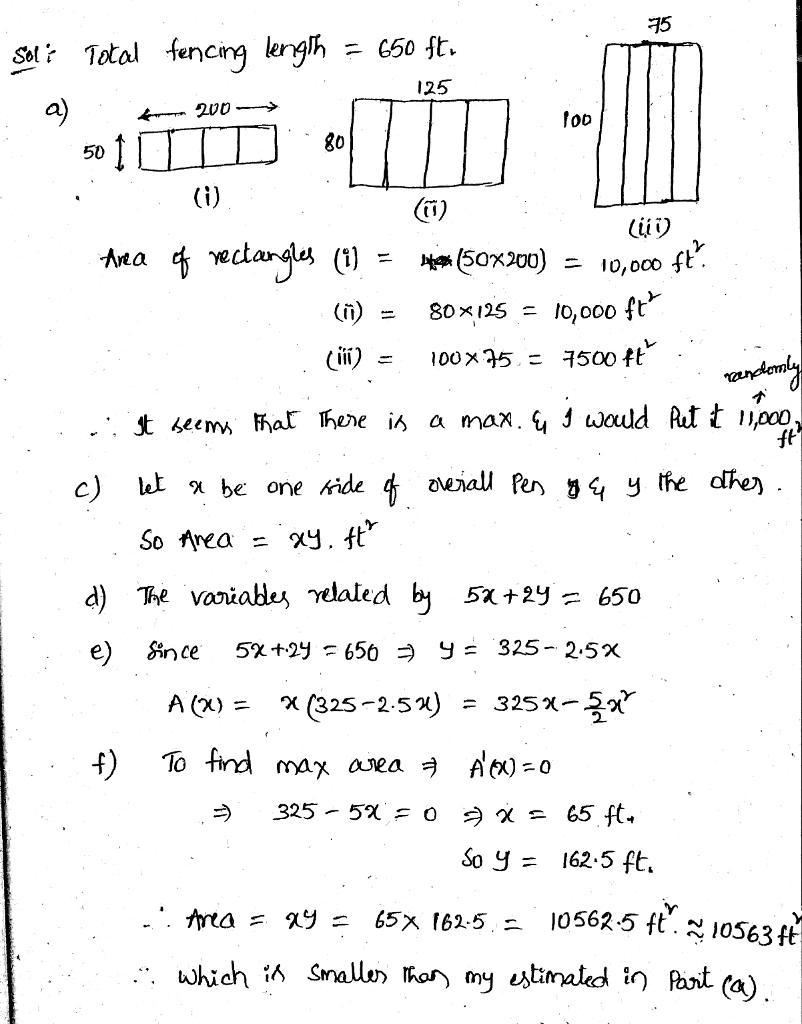 Sol: Total fencing length = 650 ft.
75
a)
200
125
50
80
100
(i)
(ii)
(iii)
Area of rectangles (i) = (50×200) = 10,000 ft².
(ii) = 80×125 = 10,000 ft²
(iii) = 100×75 = 7500 ft²
randomly
∴ It seems that There is a max. & I would Put it 11,000 ft²
c) let x be one side of overall Pen & y the other.
So Area = xy. ft²
d) The variables related by 5x+2y = 650
e) Since 5x+2y = 650 ⇒ y = 325-2.5x
A(x) = x(325-2.5x) = 325x-5/2x²
f) To find max area ⇒ A'(x)=0
⇒ 325-5x = 0 ⇒ x = 65 ft.
So y = 162.5 ft.
∴ Area = xy = 65×162.5 = 10562.5 ft². ≈ 10563 ft²
∴ which is smaller than my estimated in Part (a).